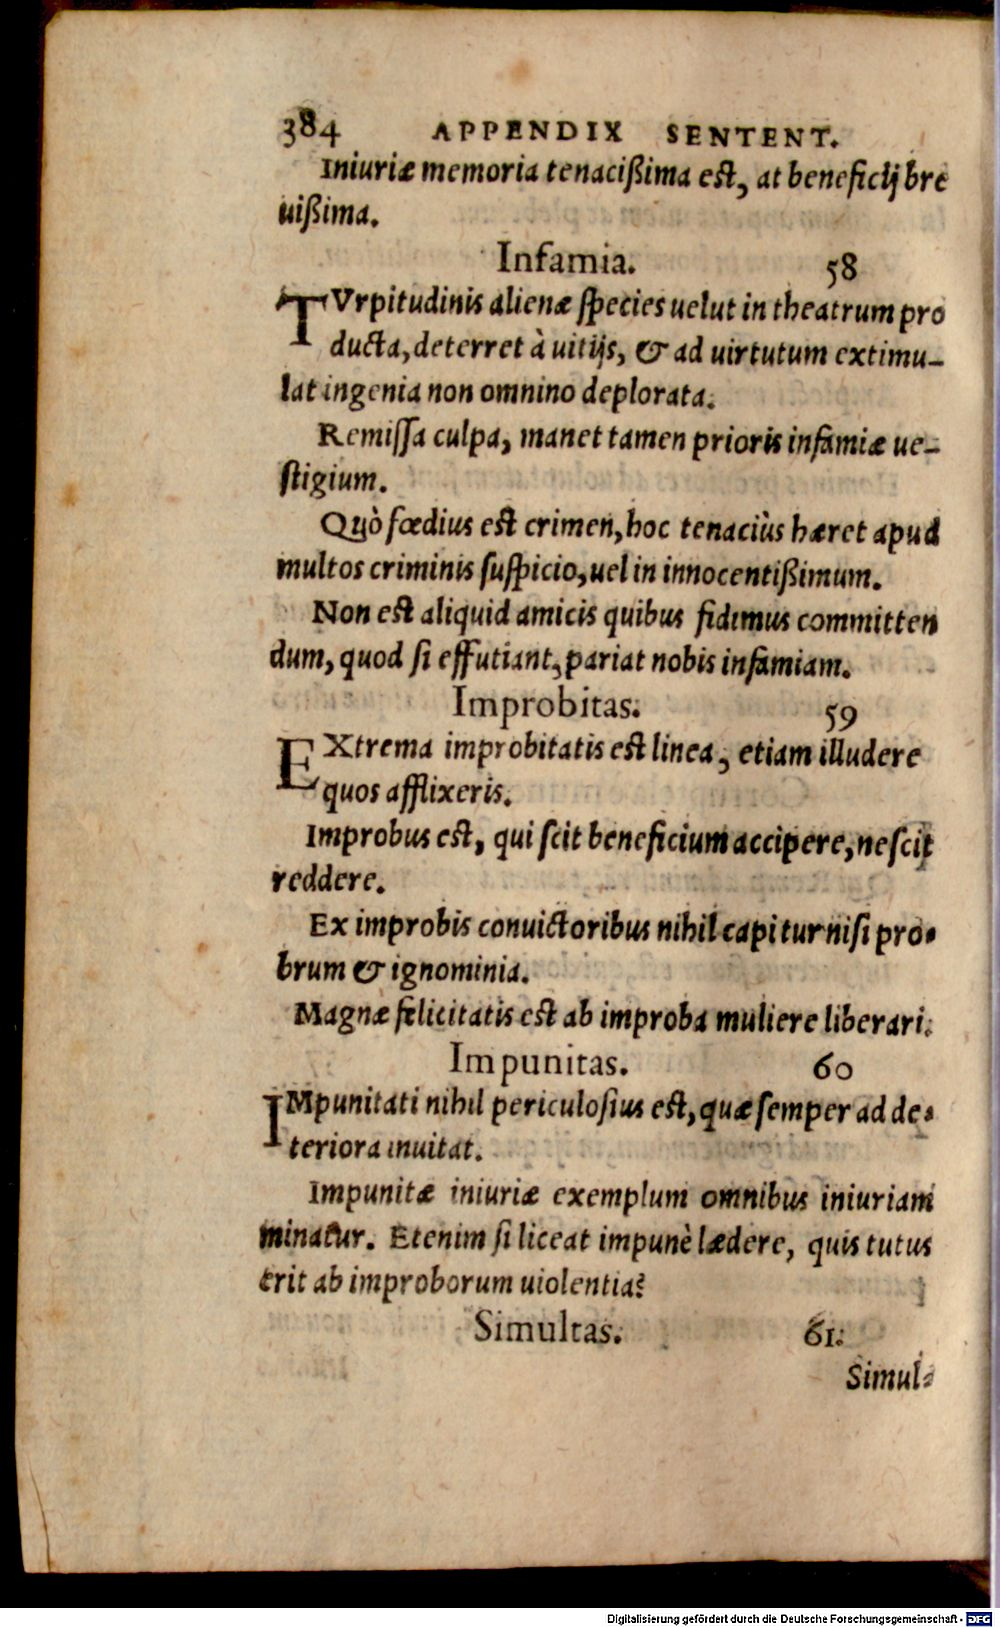 384 APPENDIX SENTENT.
Iniuriæ memoria tenacißima est, at beneficij bre
uißima.
Infamia. 58
TVrpitudinis alienæ species uelut in theatrum pro
ducta, deterret à uitijs, & ad uirtutum extimu-
lat ingenia non omnino deplorata.
Remissa culpa, manet tamen prioris infamiæ ue-
stigium.
Quò fœdius est crimen, hoc tenaciùs hæret apud
multos criminis suspicio, uel in innocentißimum.
Non est aliquid amicis quibus fidimus committen
dum, quod si effutiant, pariat nobis infamiam.
Improbitas. 59
EXtrema improbitatis est linea, etiam illudere
quos afflixeris.
Improbus est, qui scit beneficium accipere, nescit
reddere.
Ex improbis convictoribus nihil capitur nisi pro-
brum & ignominia.
Magnæ felicitatis est ab improba muliere liberari.
Impunitas. 60
IMpunitati nihil periculosius est, quæ semper ad de-
teriora inuitat.
Impunitæ iniuriæ exemplum omnibus iniuriam
minatur. Etenim si liceat impunè lædere, quis tutus
erit ab improborum uiolentia?
Simultas. 61.
Simul-
Digitalisierung gefördert durch die Deutsche Forschungsgemeinschaft - DFG